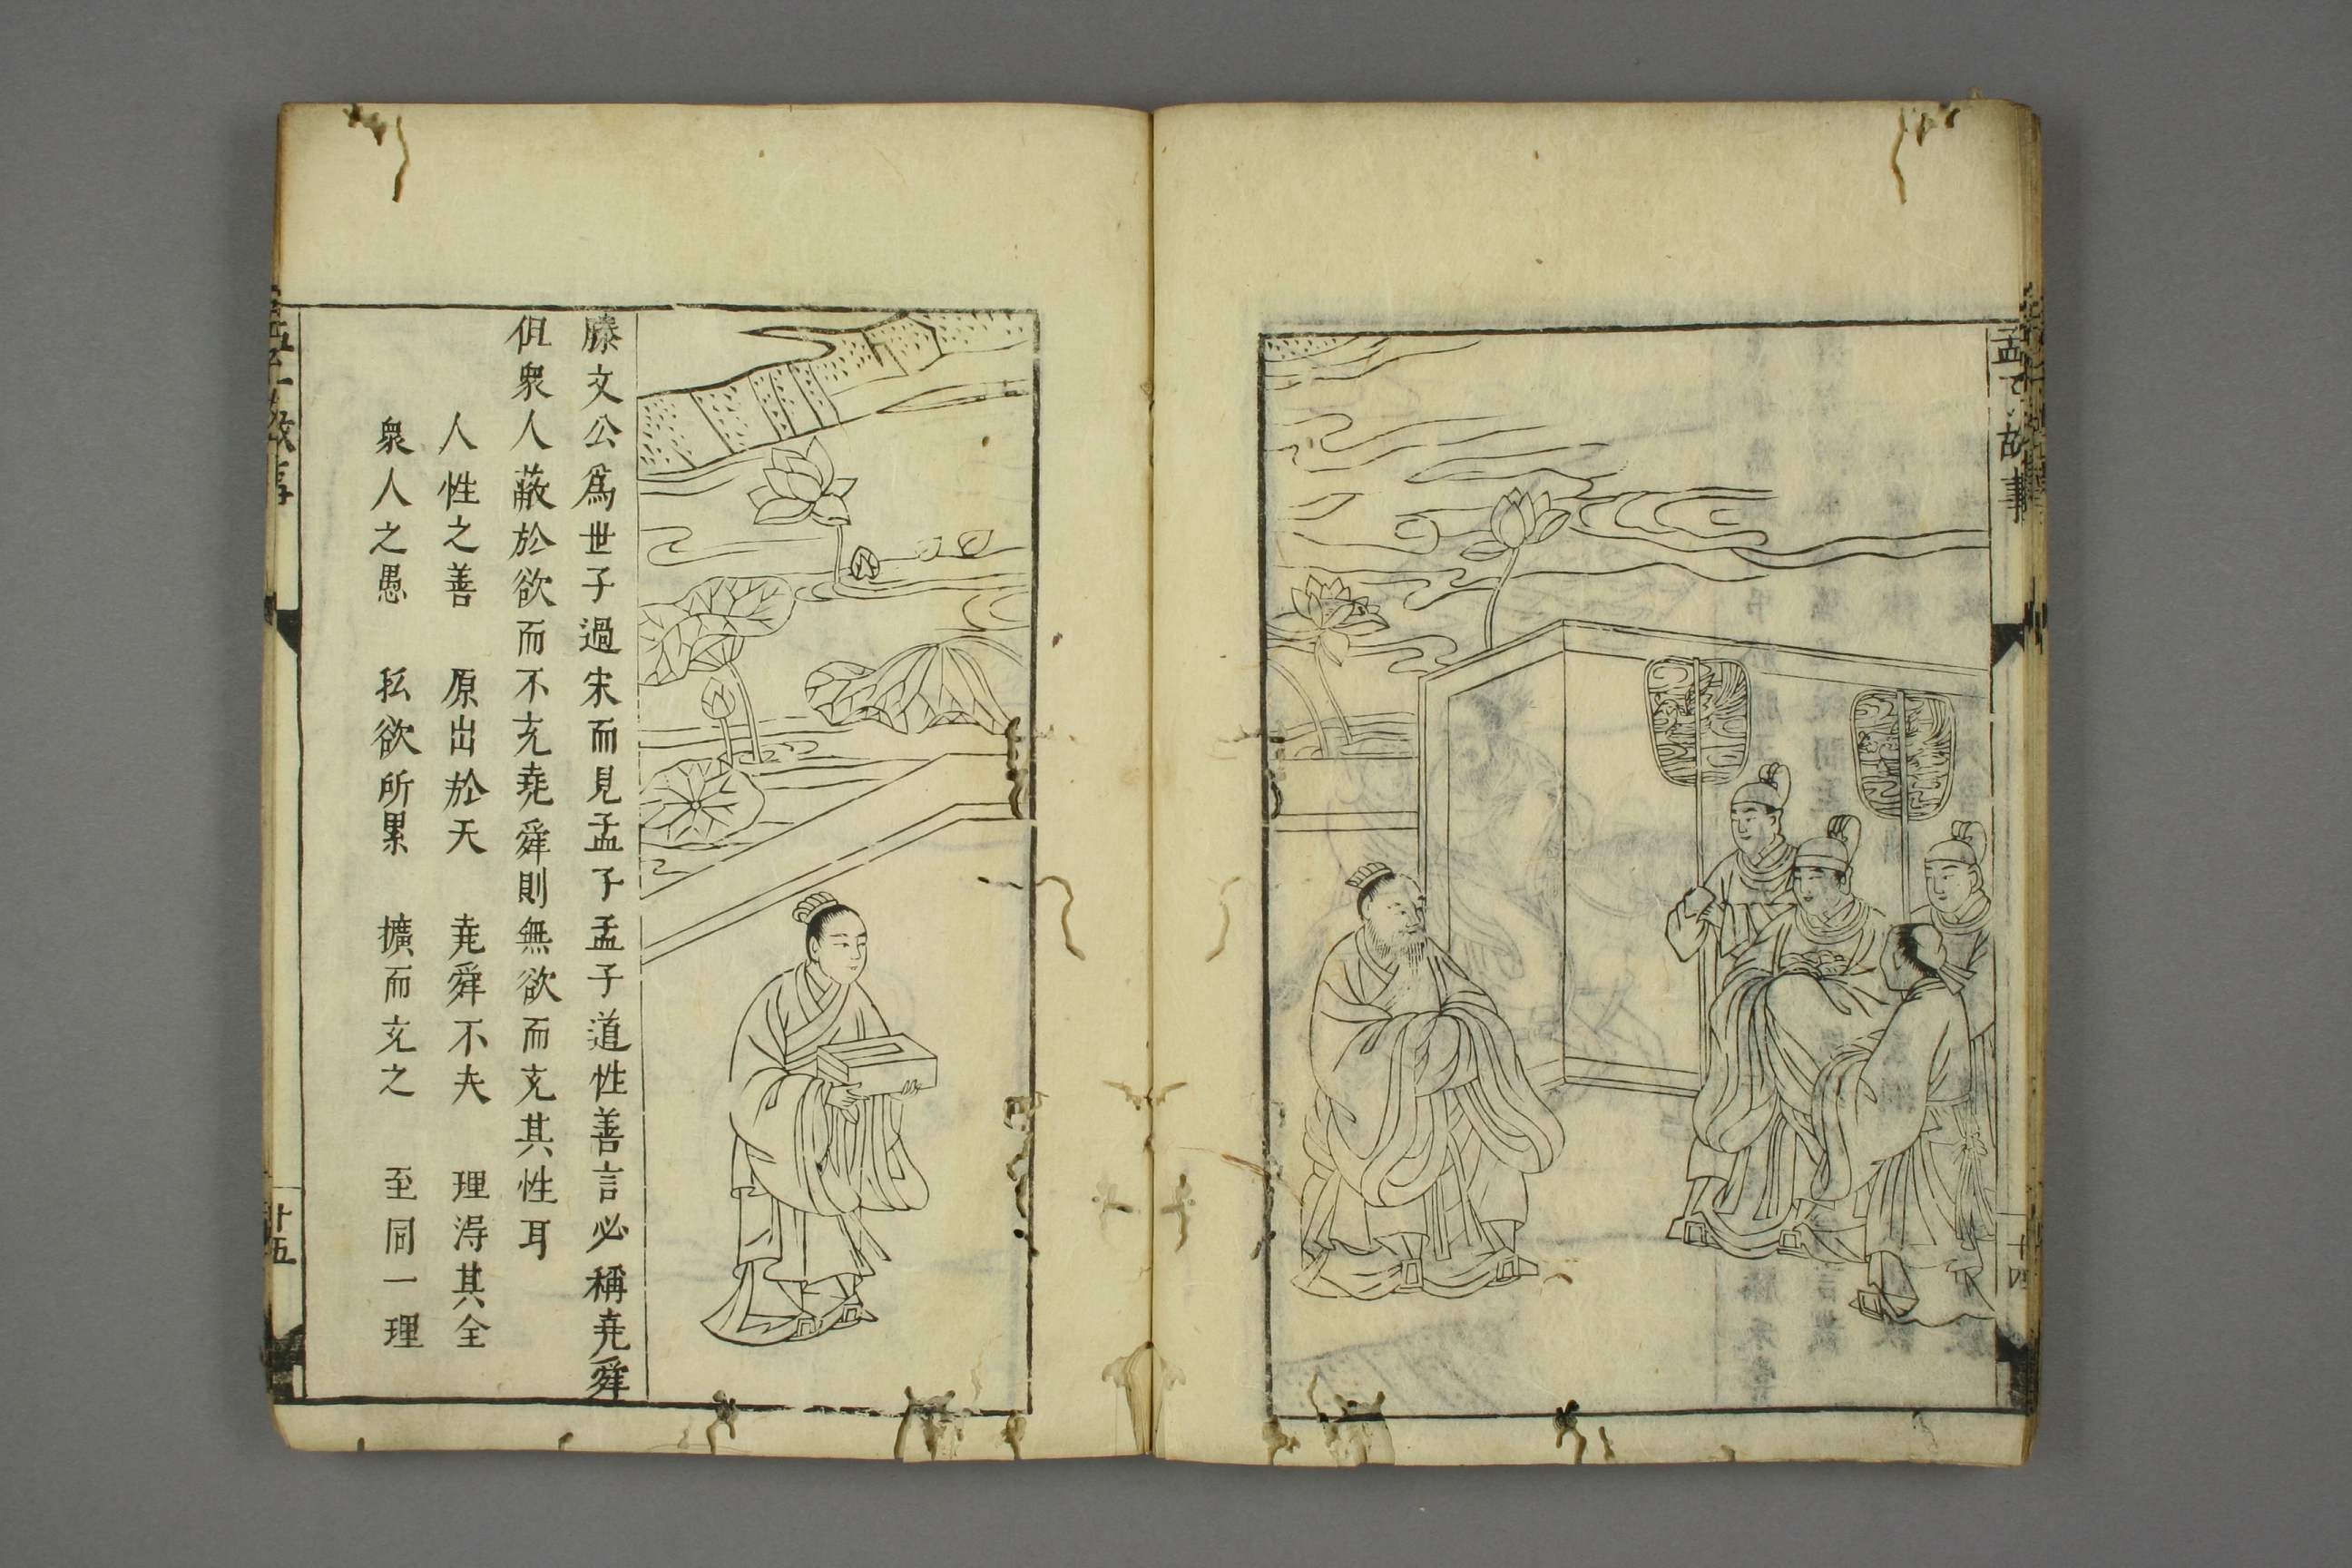 孟子故事
十四
滕文公爲世子過宋而見孟子孟子道性善言必稱堯舜
但衆人蔽於欲而不充堯舜則無欲而充其性耳
人性之善 原出於天 堯舜不失 理得其全
衆人之愚 私欲所累 擴而充之 至同一理
孟子故事
十五